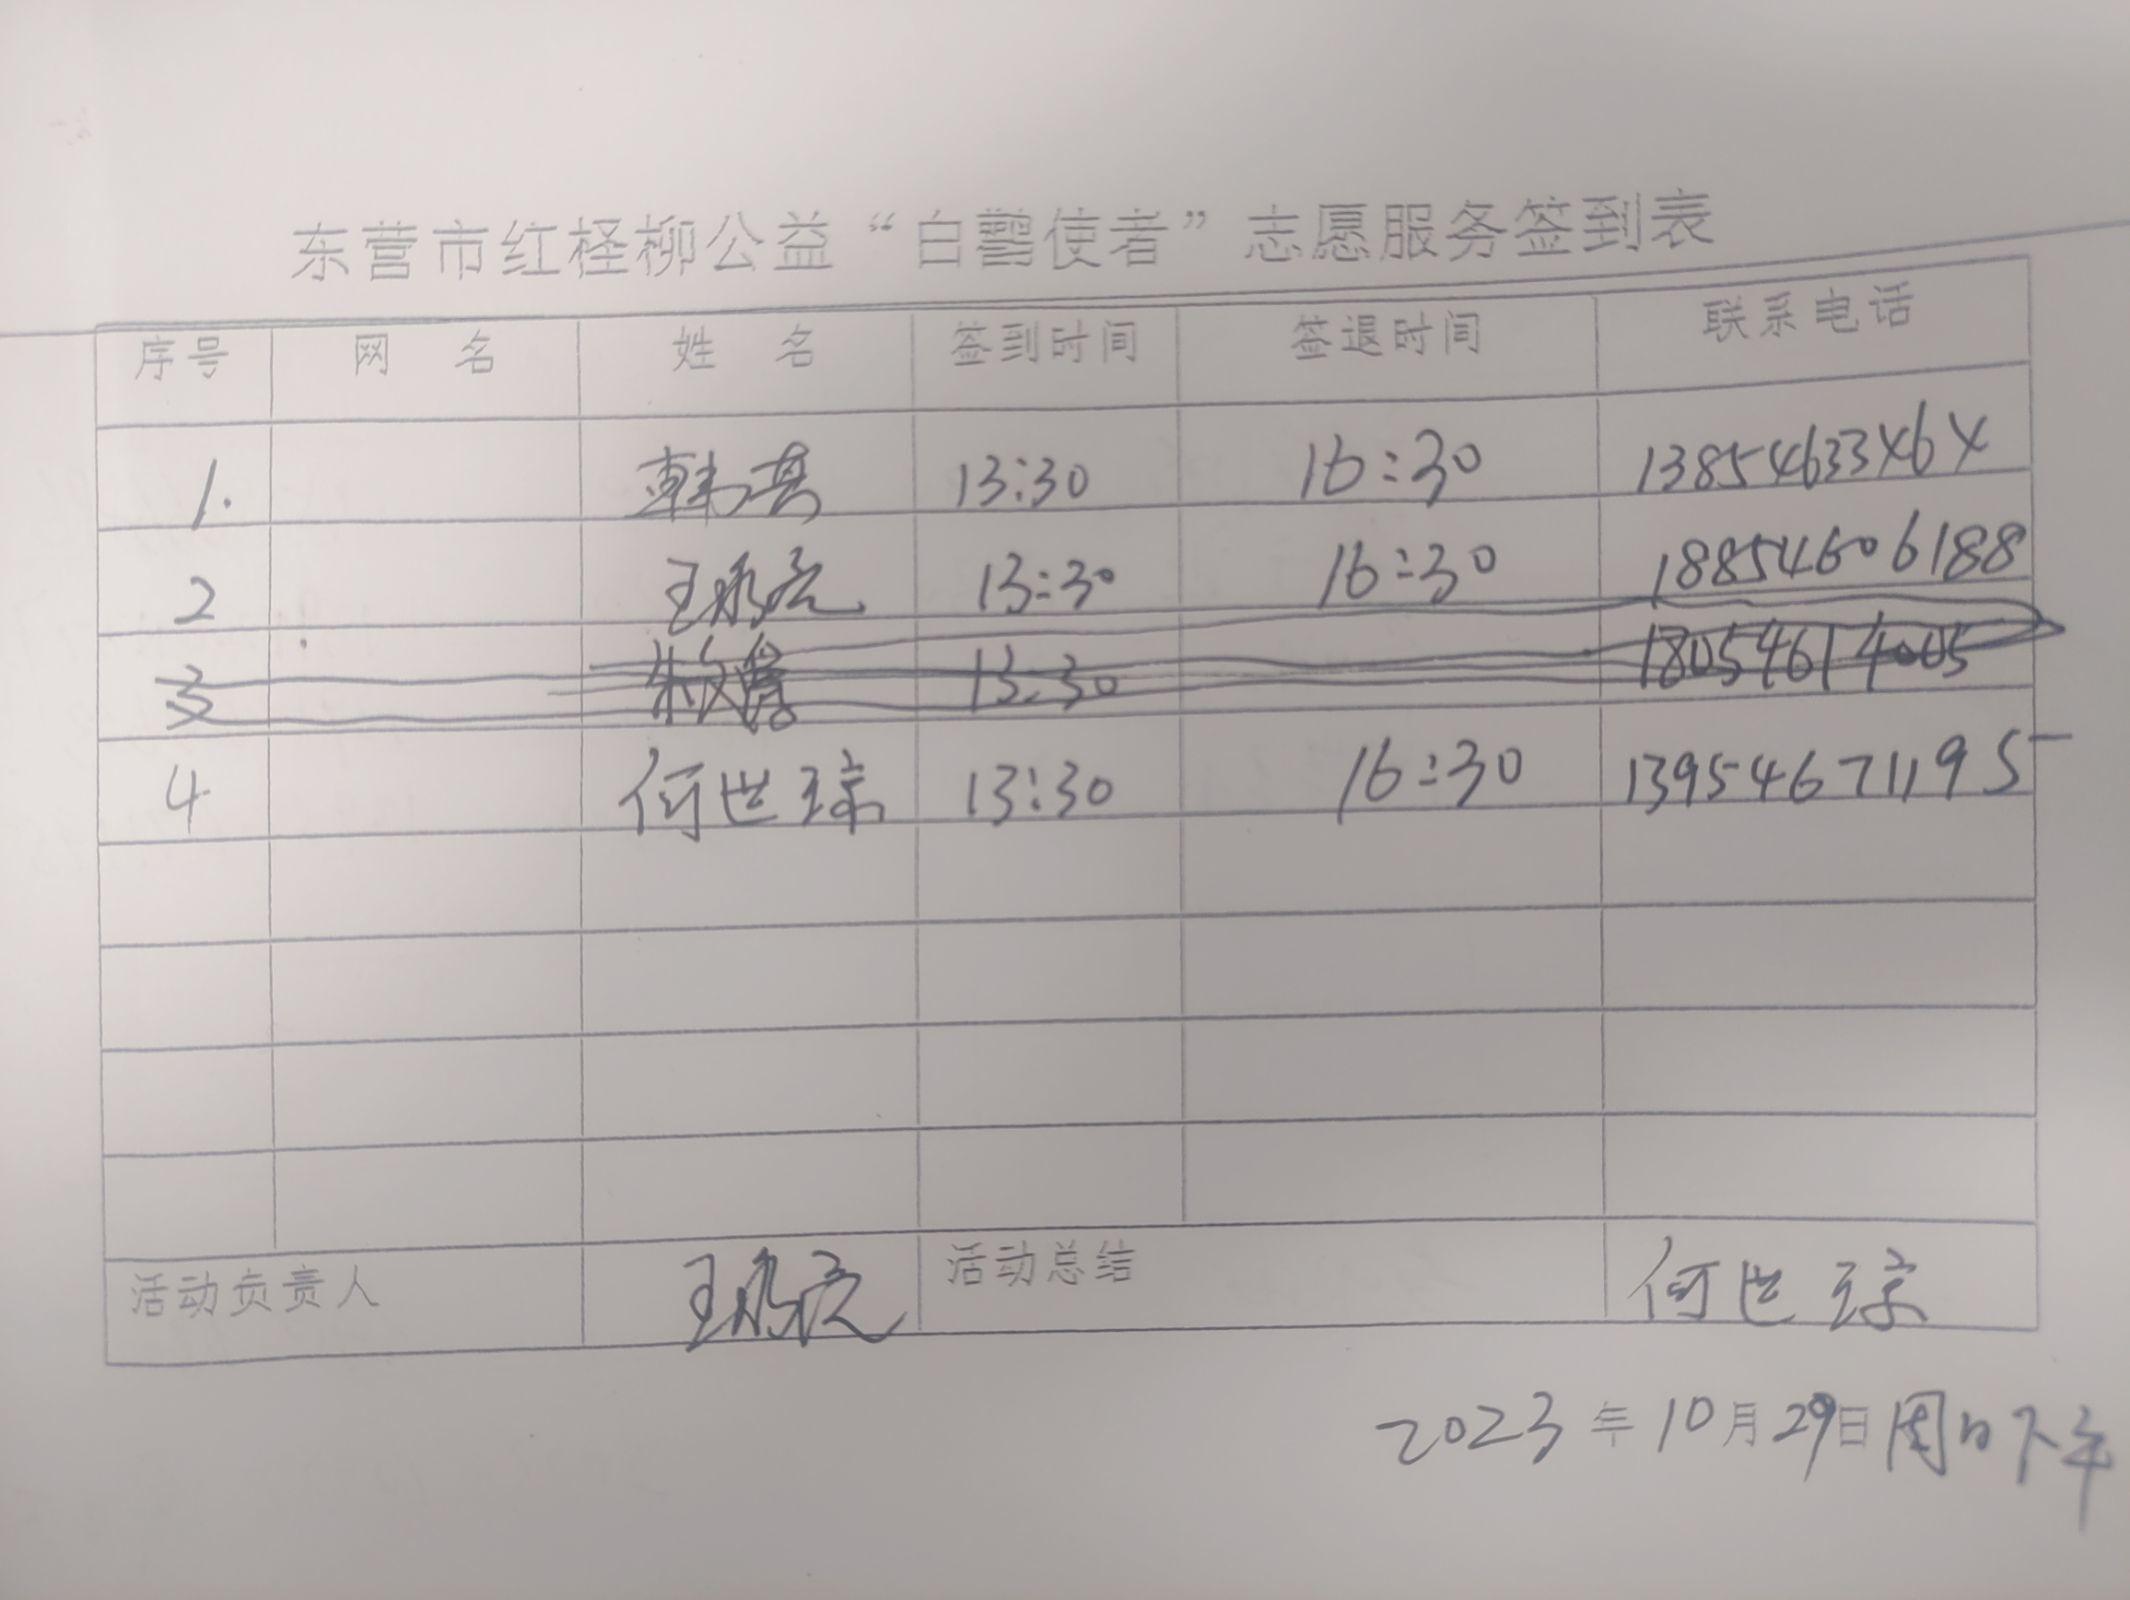 东营市红柽柳公益“白鹭使者”志愿服务签到表
序号 网 名 姓 名 签到时间 签退时间 联系电话
1. 韩其 13:30 16:30 13854633464
2 王永亮 13:30 16:30 18854606188
3 朱文 13:30 18054614005
4 何世琼 13:30 16:30 13954671195
活动负责人 王永亮 活动总结 何世琼
2023年10月29日周日下午